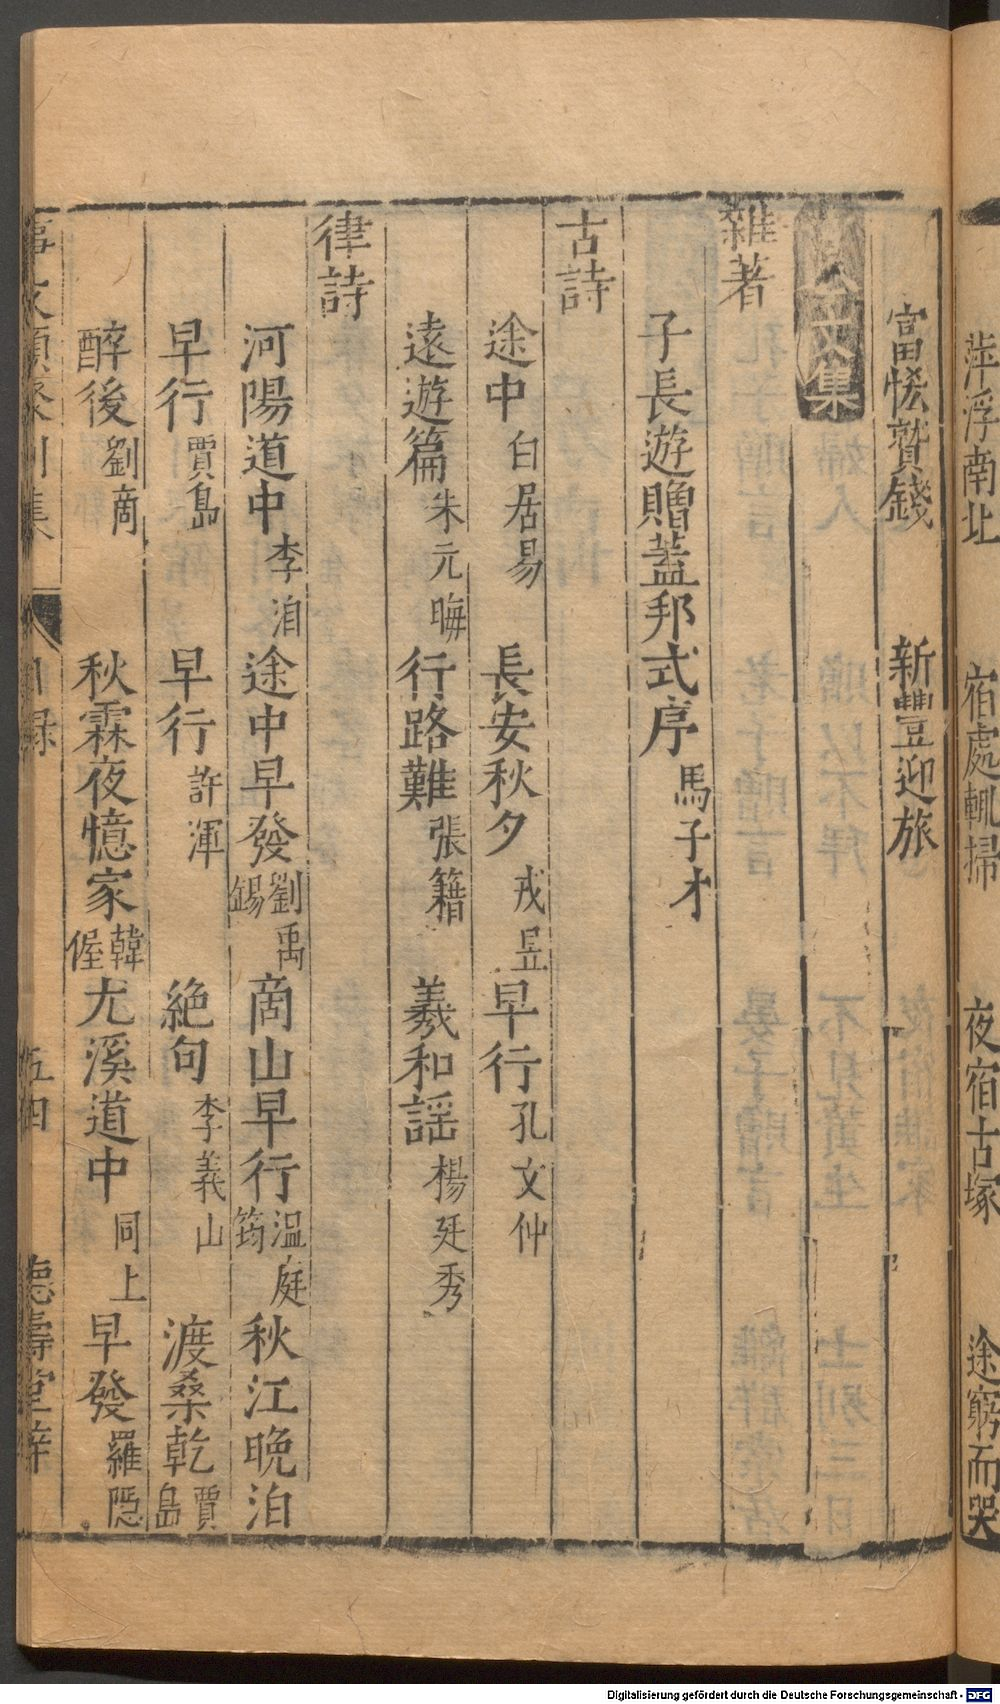 萍浮南北　宿處輒掃　夜宿古塚　途窮而哭
富恡贊錢　新豐迎旅
古今文集
雜著
子長遊贈蓋邦式序　馬子才
古詩
途中　白居易　長安秋夕　戎昱　早行　孔文仲
遠遊篇　朱元晦　行路難　張籍　羲和謡　楊廷秀
律詩
河陽道中　李洎　途中早發　劉禹錫　商山早行　溫庭筠　秋江晚泊
早行　賈島　早行　許渾　絶句　李義山　渡桑乾　賈島
醉後　劉商　秋霖夜憶家　韓偓　尤溪道中　同上　早發　羅隱
事文類聚別集　八　目録　五四　德壽堂梓
Digitalisierung gefördert durch die Deutsche Forschungsgemeinschaft - DFG